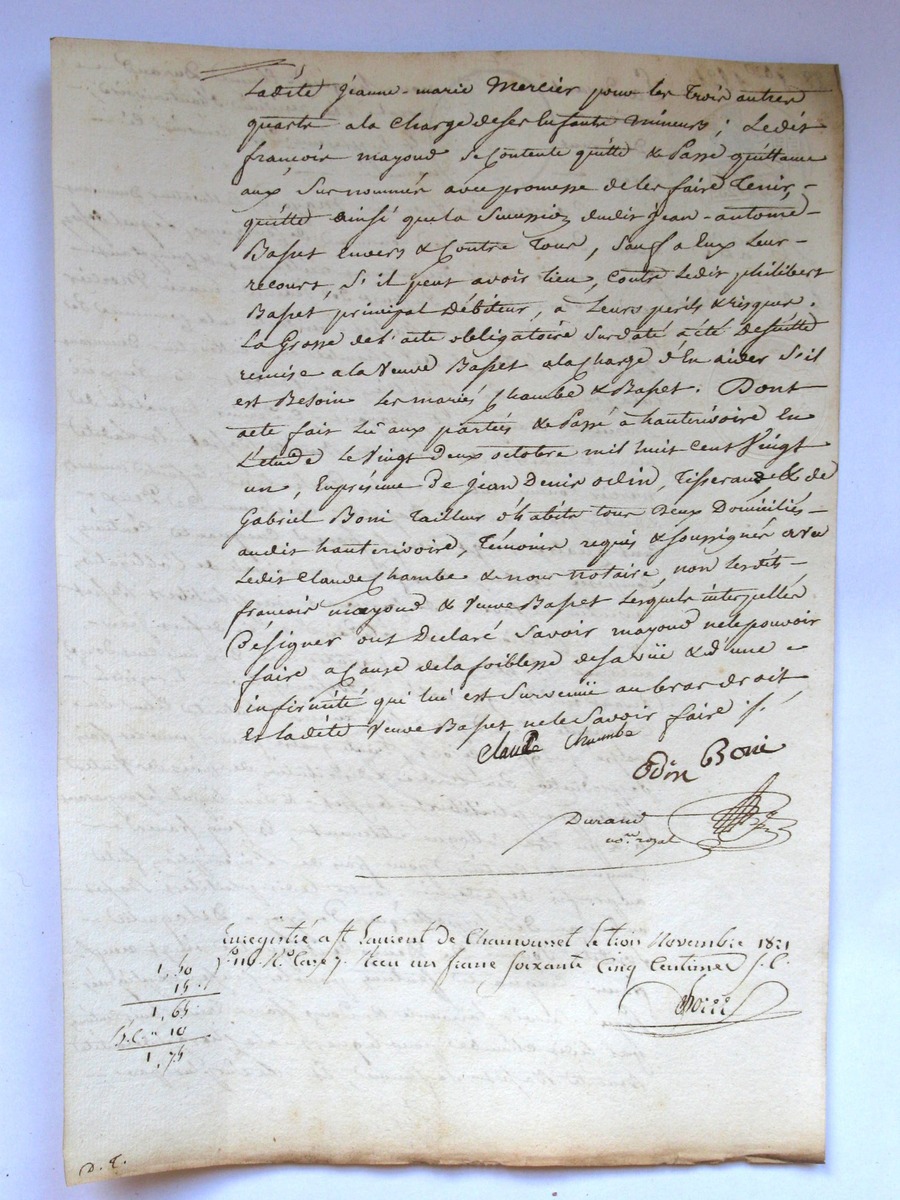 Ladite jeanne-marie Mercier pour les Trois autres
quarts a la charge de ses Enfants mineurs ; Ledit
françois mayoud se Contente quitte & passe quittance
aux surnommés avec promesse de les faire Tenir,
quitte ainsi que la Succession dudit jean-antoine
Basset Envers & Contre Tous, Sauf a Eux Leur
recours, S'il peut avoir lieu, Contre Ledit philibert
Basset principal Débiteur, a Leurs perils & risques.
La Grosse de l'acte obligatoire Surdaté a été De suitte
remise a la Veuve Basset a la charge d'En aider S'il
est Besoin les mariés Chambe & Basset. Dont
acte fait Lû aux parties & passé à hauterivoire En
L'etude Le vingt deux octobre mil huit cent Vingt
un, En présence De jean Denis odin, Tisserand & de
Gabriel Boni Tailleur d'habits tous Deux Domiciliés
audit hauterivoire, Témoins requis & soussignés avec
Ledit Claude Chambe & nous notaire, non Lesdits
françois mayoud & Veuve Basset Lesquels interpellés
De signer ont Declaré Savoir mayoud ne le pouvoir
faire a Cause de la foiblesse de sa vüe & d'une
infirmité qui lui est Survenüe au bras droit
Et ladite Veuve Basset ne le Savoir faire ./.
Claude Chambe
Odin Boni
Durand
no.re royal
Enregistré a St Laurent de Chamousset le trois Novembre 1821
f.o 116 R.o Case 7. Recu un franc soixante Cinq Centimes S. C.
1, 50
15
1, 65
S. C. 10
1, 75
D. T.